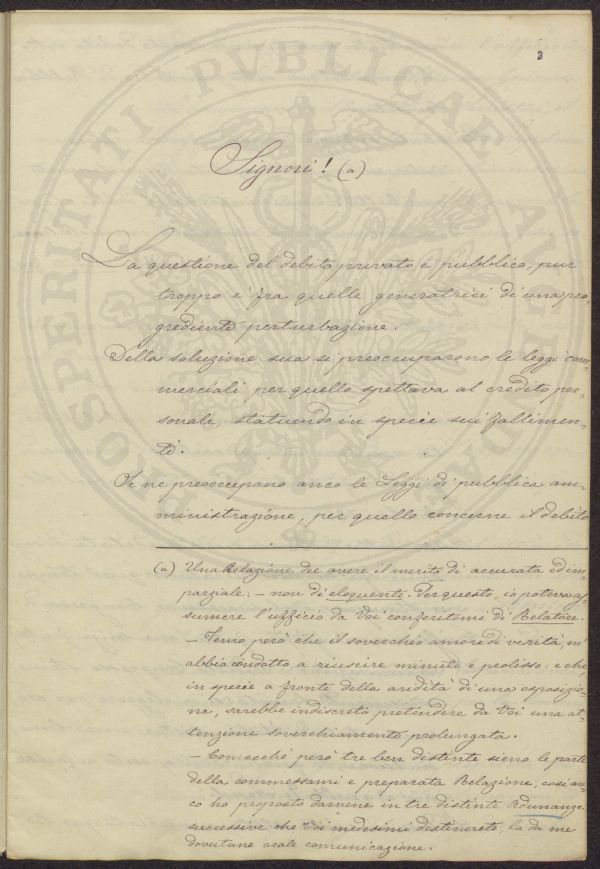 3
Signori! (a)
La questione del debito privato e pubblico, pur
troppo è fra quelle generatrici di una pro-
grediente perturbazione.
Della soluzione sua si preoccuparono le leggi com-
merciali per quello spettava al credito per-
sonale, statuendo in specie sui fallimen-
ti.
Se ne preoccupano anco le Leggi di pubblica am-
ministrazione, per quello concerne il debito
(a) Una Relazione dee avere il merito di accurata ed im-
parziale: – non di eloquente. Per questo, io poteva as-
sumere l'ufficio da Voi conferitomi di Relatore.
– Temo però che il soverchio amore di verità, m'
abbia condotto a riuscire minuto e prolisso: e che,
in specie a fronte della aridità di una esposizio-
ne, sarebbe indiscreto pretendere da Voi una at-
tenzione soverchiamente prolungata.
– Comecchè però tre ben distinte sieno le parti
della commessami e preparata Relazione, così an-
co ho proposto darvene in tre distinte Adunanze
successive che Voi medesimi destinerete, la da me
dovutane orale comunicazione.
PROSPERITATI PUBLICAE AUGENDAE